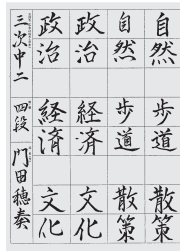 自然
歩道
散策
自然
歩道
散策
政治
経済
文化
政治
経済
文化
三次中二
四段
門田穂奏